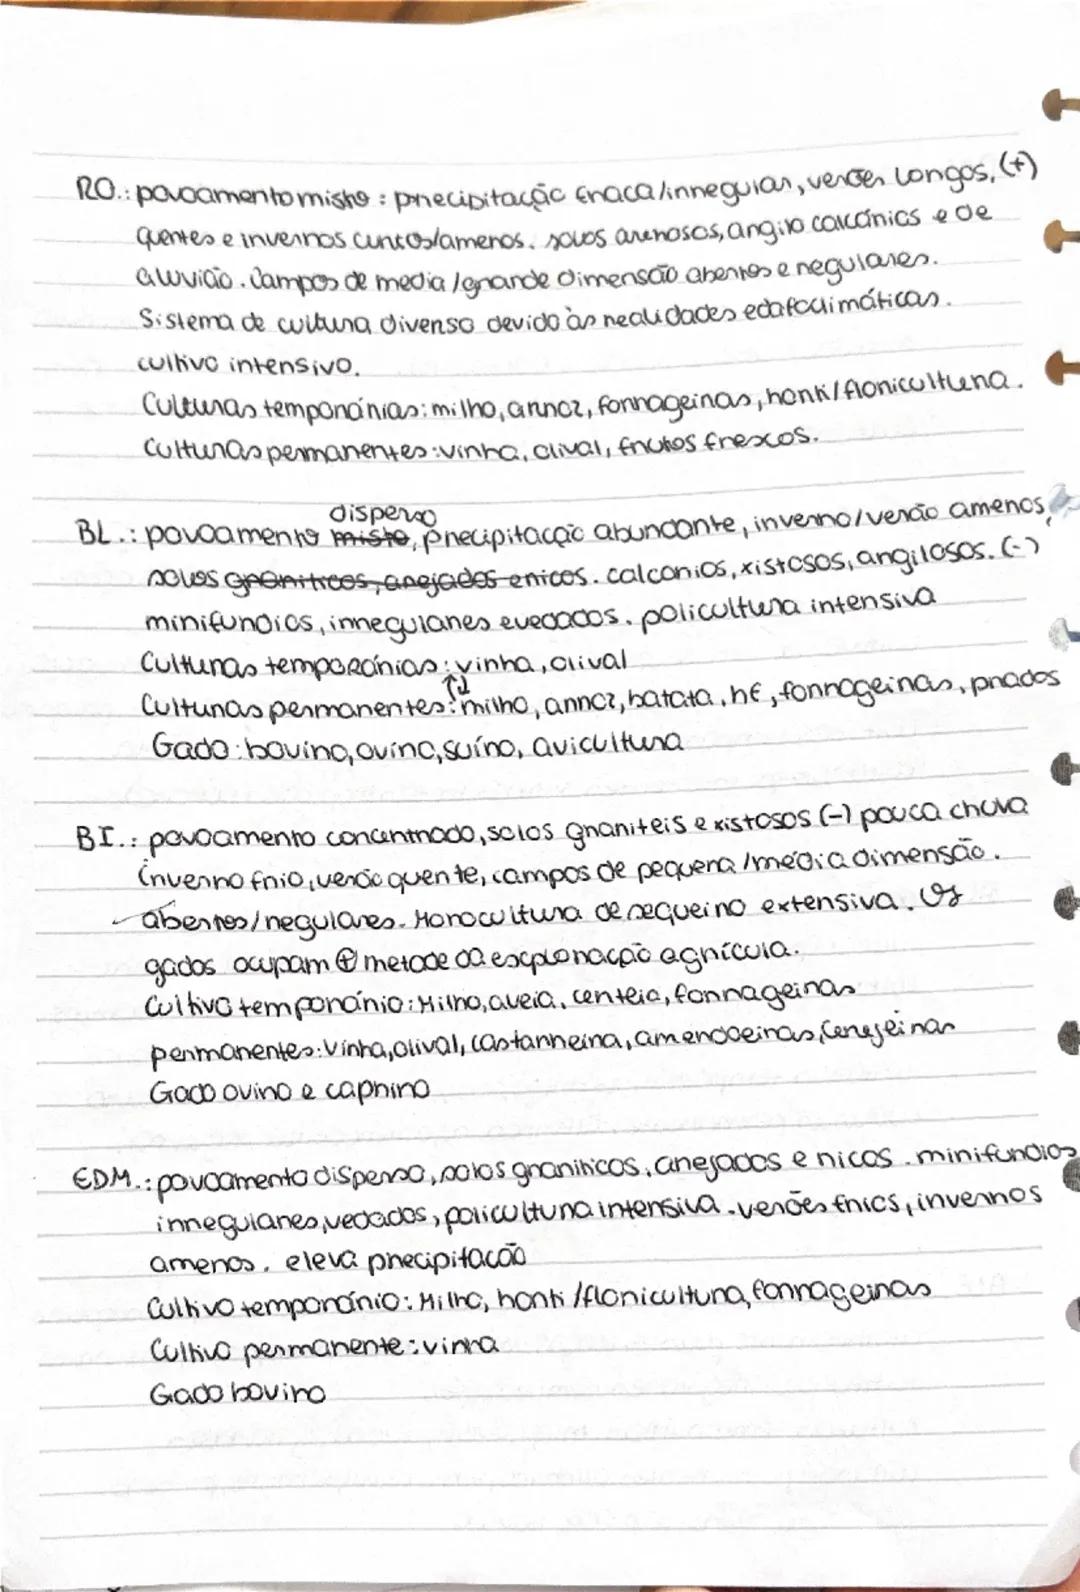 RO.: povoamento misto : precipitação fraca/irregular, verões longos, (+)
quentes e invernos curtos/amenos. solos arenosos, argilo calcários e de
aluvião. Campos de media /grande dimensão abertos e regulares.
Sistema de cultura diverso devido às realidades edafoclimáticas.
cultivo intensivo.
Culturas temporárias: milho, arroz, forrageiras, horti/floricultura.
Culturas permanentes: vinha, olival, frutos frescos.
disperso
BL.: povoamento misto, precipitação abundante, inverno/verão amenos,
solos graníticos, arejados e ricos. calcários, xistosos, argilosos. (-)
minifundios, irregulares e vedados. policultura intensiva
Culturas temporárias: vinha, olival
↑↓
Culturas permanentes: milho, arroz, batata, hf, forrageiras, prados
Gado: bovino, ovino, suíno, avicultura
BI.: povoamento concentrado, solos graniteis e xistosos (-) pouca chuva
inverno frio, verão quente, campos de pequena /média dimensão.
abertos/regulares. Monocultura de sequeiro extensiva. Os
gados ocupam ⊕ metade da exploração agrícola.
Cultivo temporário: Milho, aveia, centeio, forrageiras
permanentes: Vinha, olival, castanheira, amendoeiras, Cerejeiras
Gado ovino e caprino
EDM.: povoamento disperso, solos graniticos, arejados e ricos. minifundios
irregulares, vedados, policultura intensiva. verões frios, invernos
amenos. eleva precipitação
Cultivo temporário: Milho, horti /floricultura, forrageiras
Cultivo permanente: vinha
Gado bovino